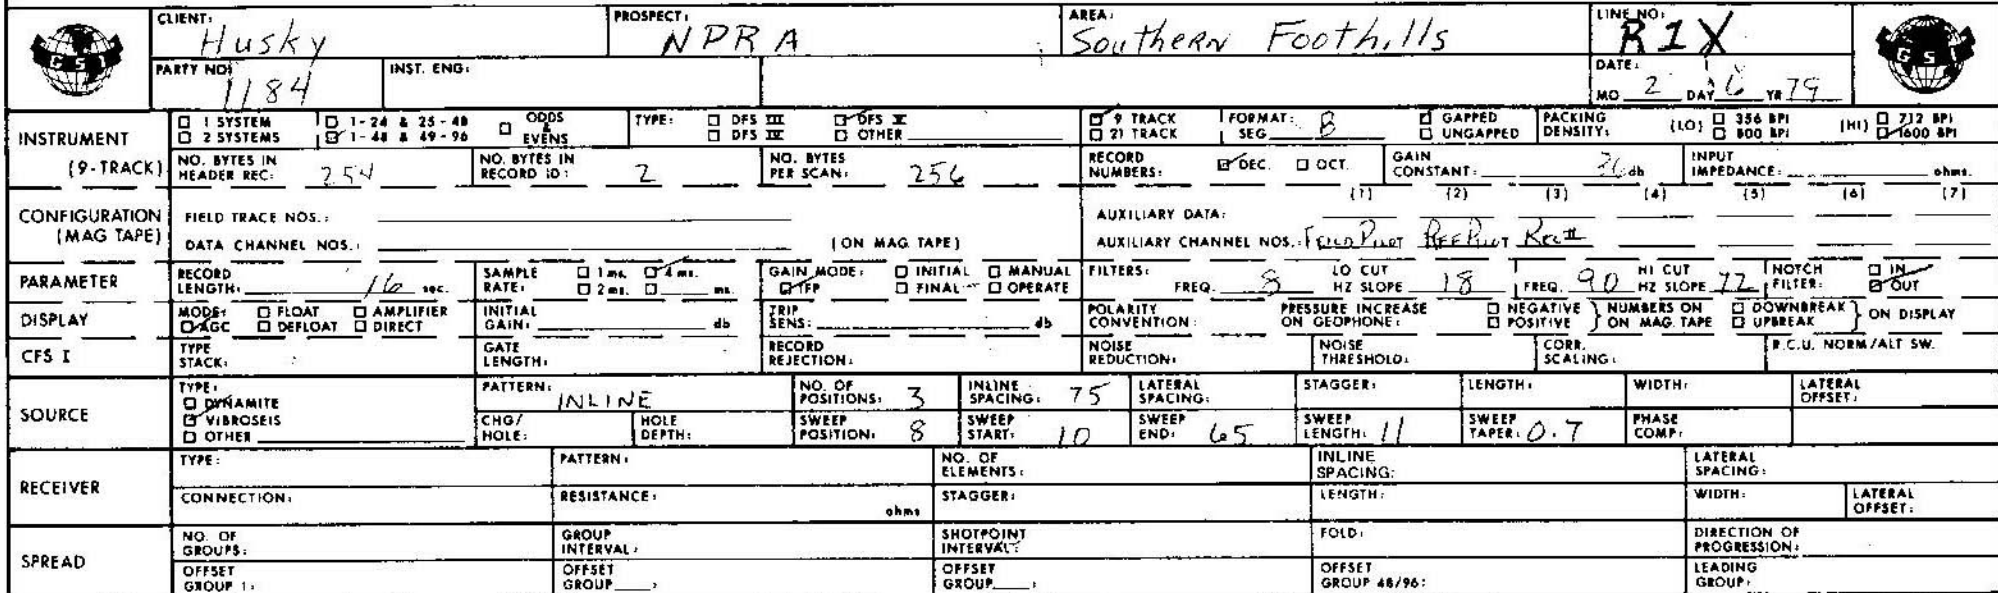 CLIENT: Husky PROSPECT: NPRA AREA: Southern Foothills LINE NO: R1X
GSI GSI
PARTY NO: 1184 INST. ENG: DATE: MO 2 DAY 6 YR 79
INSTRUMENT (9-TRACK)
□ 1 SYSTEM □ 1-24 & 25-48 □ ODDS & EVENS TYPE: □ DFS III ☑ DFS V ☑ 9 TRACK FORMAT: SEG B ☑ GAPPED PACKING DENSITY: (LO) □ 356 BPI (HI) □ 712 BPI
□ 2 SYSTEMS ☑ 1-48 & 49-96 □ DFS IV □ OTHER □ 21 TRACK □ UNGAPPED □ 800 BPI ☑ 1600 BPI
NO. BYTES IN HEADER REC: 254 NO. BYTES IN RECORD ID: 2 NO. BYTES PER SCAN: 256 RECORD NUMBERS: ☑ DEC. □ OCT. GAIN CONSTANT: 36 db INPUT IMPEDANCE: ohms.
CONFIGURATION (MAG TAPE)
FIELD TRACE NOS.: AUXILIARY DATA: (1) (2) (3) (4) (5) (6) (7)
DATA CHANNEL NOS.: (ON MAG TAPE) AUXILIARY CHANNEL NOS.: FIELD PILOT REF PILOT
PARAMETER RECORD LENGTH: 16 sec. SAMPLE RATE: □ 1 ms. ☑ 4 ms. □ 2 ms. □ ms. GAIN MODE: □ INITIAL □ MANUAL ☑ IFP □ FINAL □ OPERATE FILTERS: FREQ. 8 LO CUT HZ SLOPE 18 FREQ. 90 HI CUT HZ SLOPE 72 NOTCH FILTER: □ IN ☑ OUT
DISPLAY MODE: □ FLOAT □ AMPLIFIER ☑ AGC □ DEFLOAT □ DIRECT INITIAL GAIN: db TRIP SENS: db POLARITY CONVENTION: PRESSURE INCREASE ON GEOPHONE: □ NEGATIVE □ POSITIVE } NUMBERS ON MAG. TAPE □ DOWNBREAK □ UPBREAK } ON DISPLAY
CFS I TYPE STACK: GATE LENGTH: RECORD REJECTION: NOISE REDUCTION: NOISE THRESHOLD: CORR. SCALING: R.C.U. NORM/ALT SW.
SOURCE TYPE: □ DYNAMITE ☑ VIBROSEIS □ OTHER
PATTERN: INLINE NO. OF POSITIONS: 3 INLINE SPACING: 75 LATERAL SPACING: STAGGER: LENGTH: WIDTH: LATERAL OFFSET:
CHG/HOLE: HOLE DEPTH: SWEEP POSITION: 8 SWEEP START: 10 SWEEP END: 65 SWEEP LENGTH: 11 SWEEP TAPER: 0.7 PHASE COMP:
RECEIVER TYPE: PATTERN: NO. OF ELEMENTS: INLINE SPACING: LATERAL SPACING:
CONNECTION: RESISTANCE: ohms STAGGER: LENGTH: WIDTH: LATERAL OFFSET:
SPREAD NO. OF GROUPS: GROUP INTERVAL: SHOTPOINT INTERVAL: FOLD: DIRECTION OF PROGRESSION:
OFFSET GROUP 1: OFFSET GROUP ___: OFFSET GROUP ___: OFFSET GROUP 48/96: LEADING GROUP: